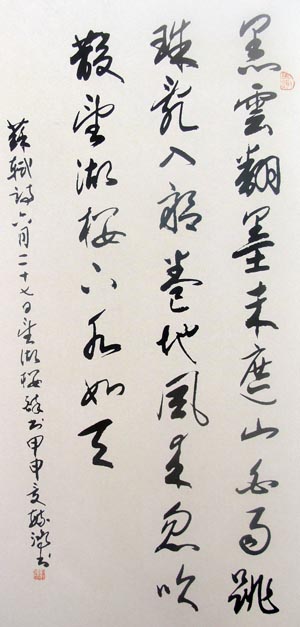 黑雲翻墨未遮山白雨跳
珠亂入船卷地風來忽吹
散望湖樓下水如天
蘇軾詩六月二十七日望湖樓醉書甲申夏書